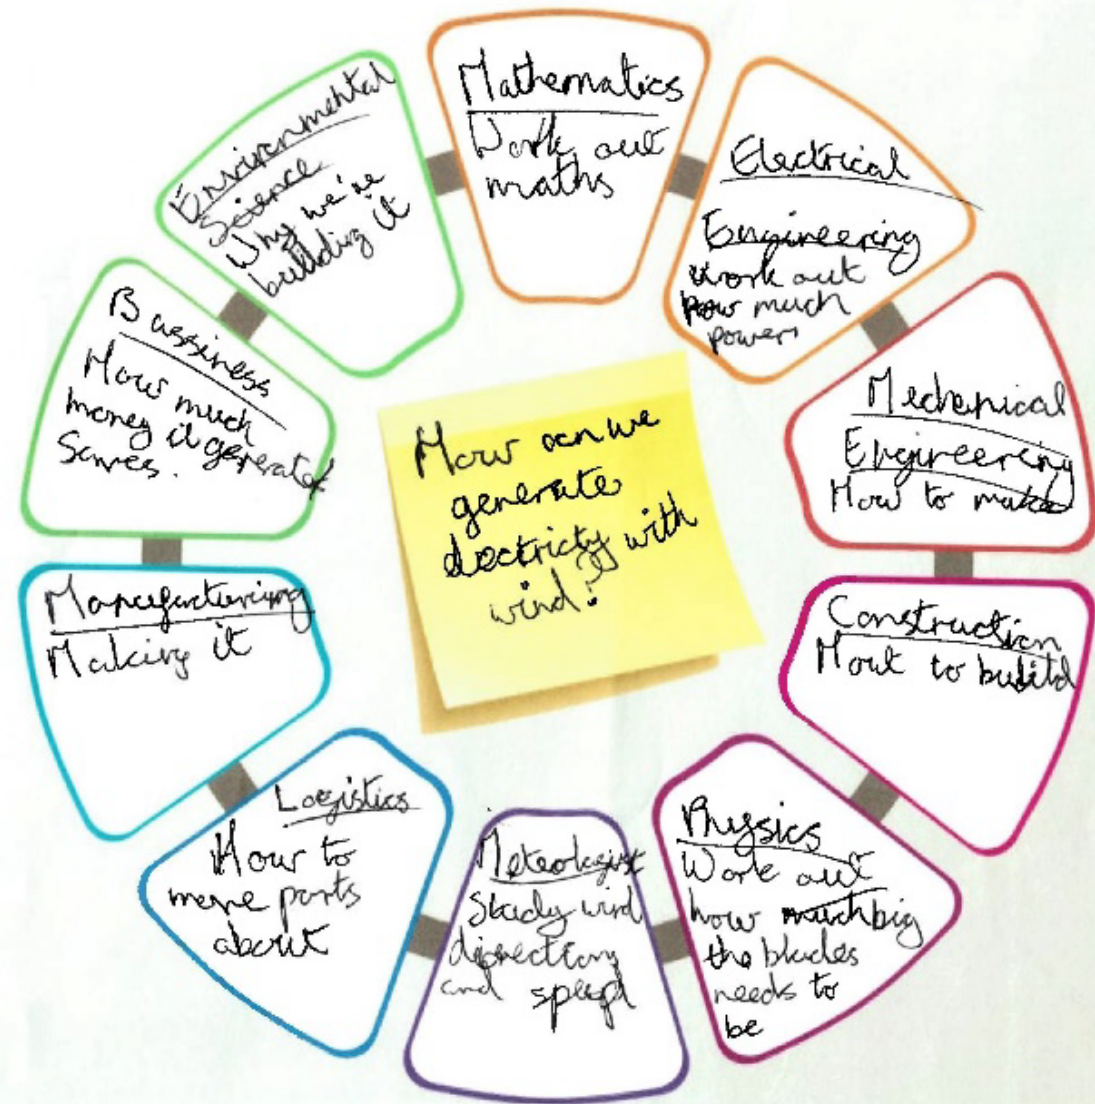 How can we
generate
electricty with
wind?
Mathematics
Work out
maths
Electrical
Engineering
work out
how much
power
Mechanical
Engineering
How to make
Construction
How to build
Physics
Work out
how much big
the blades
needs to
be
Meteologist
Study wind
direction
and speed
Logistics
How to
move parts
about
Manufacturing
Making it
Bussiness
How much
money it generates
Saves.
Environmental
Science
Why we're
building it